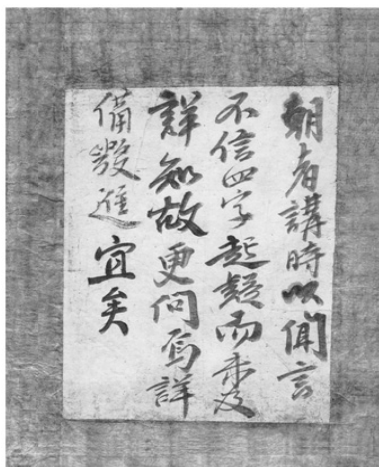 朝者講時以聞言
不信四字起疑而未及
詳知故更問焉詳
備發進宜矣